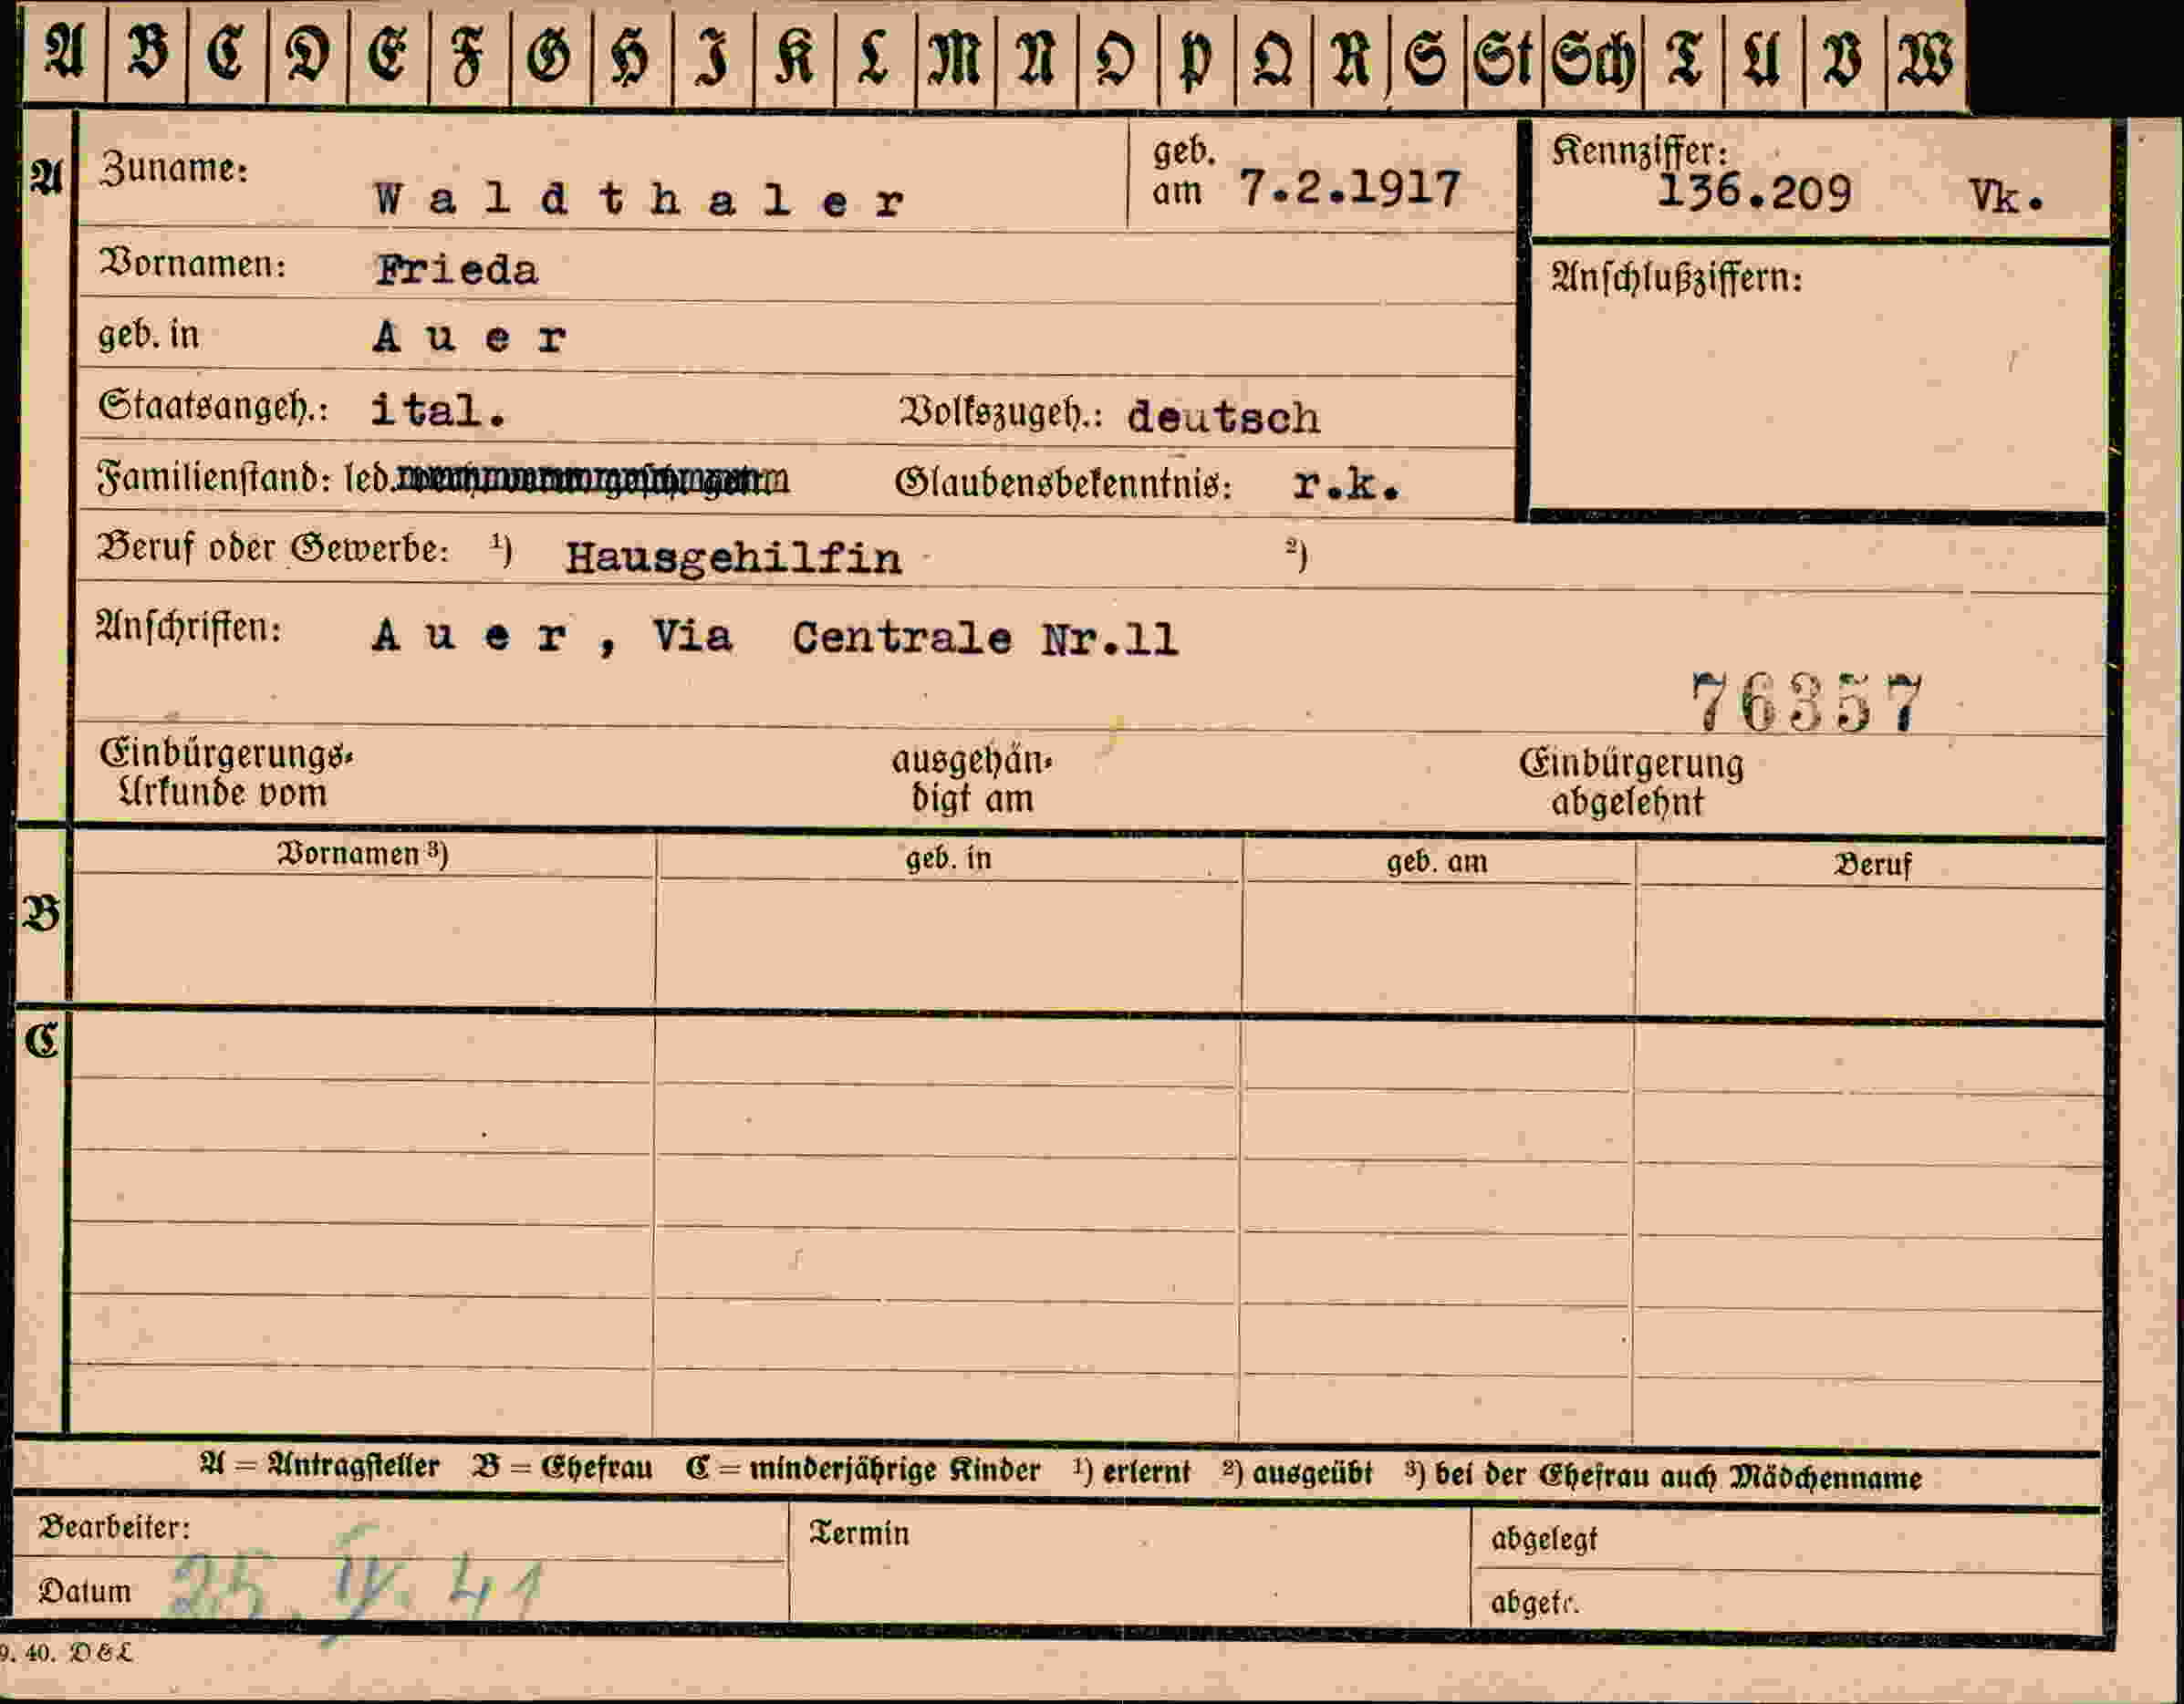 A B C D E F G H I K L M N O P Q R S St Sch T U V W
A Zuname: Waldthaler geb. am 7.2.1917 Kennziffer: 136.209 Vk.
Vornamen: Frieda Anschlußziffern:
geb. in Auer
Staatsangeh.: ital. Volkszugeh.: deutsch
Familienstand: led. Glaubensbekenntnis: r.k.
Beruf oder Gewerbe: ¹) Hausgehilfin ²)
Anschriften: Auer, Via Centrale Nr.11
76357
Einbürgerungs- ausgehän- Einbürgerung
Urkunde vom digt am abgelehnt
Vornamen ³) geb. in geb. am Beruf
B
C
A = Antragsteller B = Ehefrau C = minderjährige Kinder ¹) erlernt ²) ausgeübt ³) bei der Ehefrau auch Mädchenname
Bearbeiter: Termin abgelegt
Datum 25. IV. 41 abgetr.
9. 40. D&L